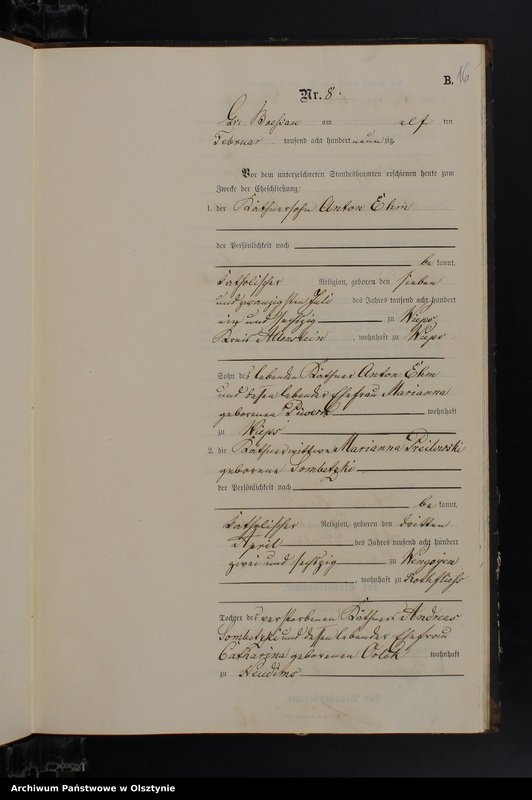 B. 16
Nr. 8.
Gr. Boessau am elf ten
Februar tausend acht hundert neunzig.
Vor dem unterzeichneten Standesbeamten erschienen heute zum
Zwecke der Eheschließung:
1. der Käthnersohn Anton Ehm
der Persönlichkeit nach
be kannt,
katholischer Religion, geboren den sieben
und zwanzigsten Juli des Jahres tausend acht hundert
ein und sechszig zu Wieps
Kreis Allenstein, wohnhaft zu Wieps
Sohn des lebenden Käthner Anton Ehm
und dessen lebender Ehefrau Marianna
geborenen wohnhaft
zu Wieps
2. die Käthnerwittwe Marianna Preilowski
geborene Sombetzki
der Persönlichkeit nach
be kannt,
katholischer Religion, geboren den dritten
April des Jahres tausend acht hundert
zwei und sechszig zu Wengojen
, wohnhaft zu Rothfließ
Tochter des verstorbenen Käthners Andreas
Sombetzki und dessen lebender Ehefrau
Catharina geborenen Orlok wohnhaft
zu Neudims
Archiwum Państwowe w Olsztynie